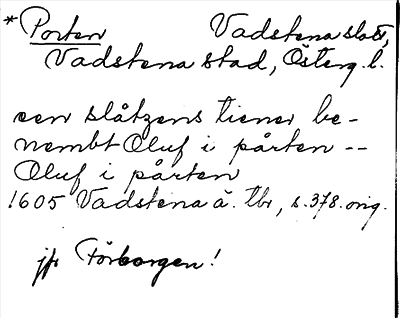 *Porten Vadstena slott,
Vadstena stad, Österg. l.
een slåtzens tiener be-
nembt Oluf i pårten --
Oluf i pårten
1605 Vadstena ä. tbr, s. 378. orig.
jfr Förborgen!